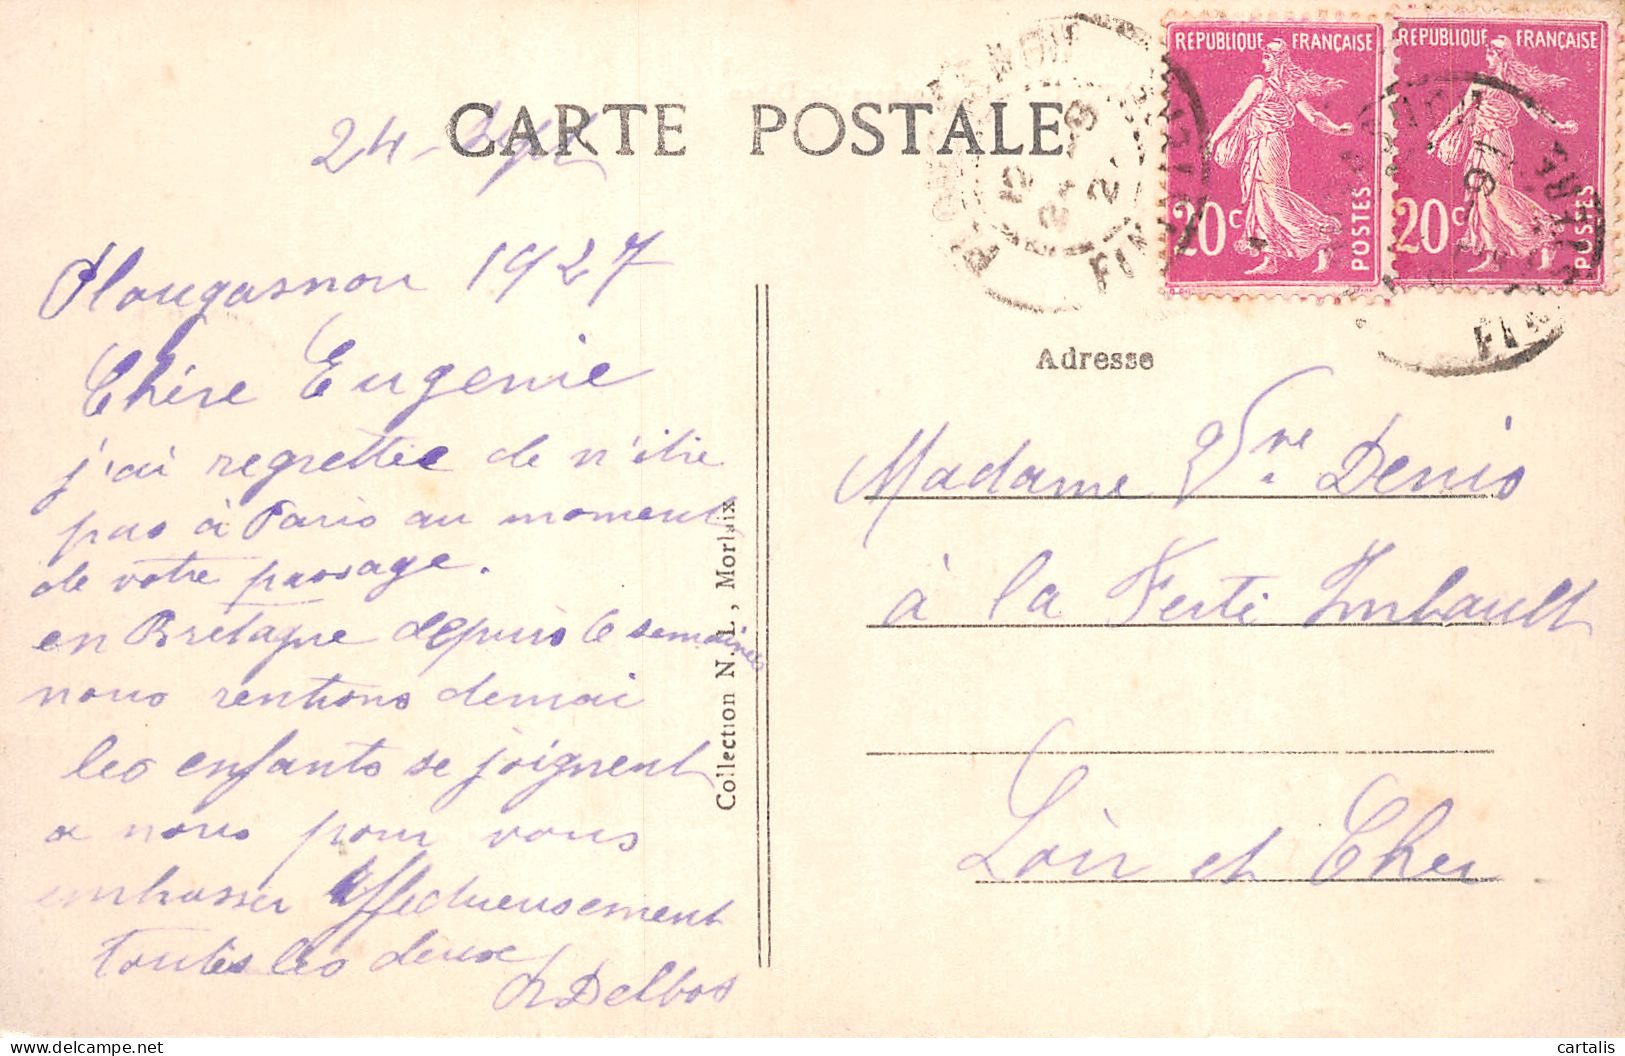 CARTE POSTALE
24-
Plougasnou 1927
Chère Eugenie
j'ai regrettée de n'être
pas à Paris au moment
de votre passage.
en Bretagne depuis 6 semaines
nous rentrons demai
les enfants se joignent
a nous pour vous
embrasser affectueusement
toutes les deux
Delbos
Collection N. L., Morlaix
REPUBLIQUE FRANÇAISE
20c POSTES
REPUBLIQUE FRANÇAISE
20c POSTES
FIN
FINI
Adresse
Madame Vve Denis
à la Ferté Imbault
Loir et Cher
cartalis
delcampe.net